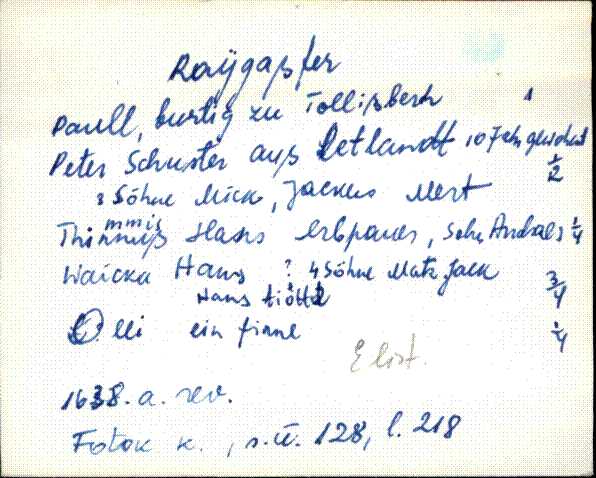 Raÿgaßfer
Paull, burtig zu Tollißberk 1
Peter Schuster auß Letlandt 10 Jahr gewohnt 1/2
3 Söhne Mick, Jackus Mert
Thinnuß mmis Hans Erbpauer, Sohn Andres 1/4
Waicka Hans ? 4 Söhne Matz Jack 3/4
Hans
Olli ein finne 1/4
E list.
1638. a. rev.
Fotok k., s.ü. 128, l. 218